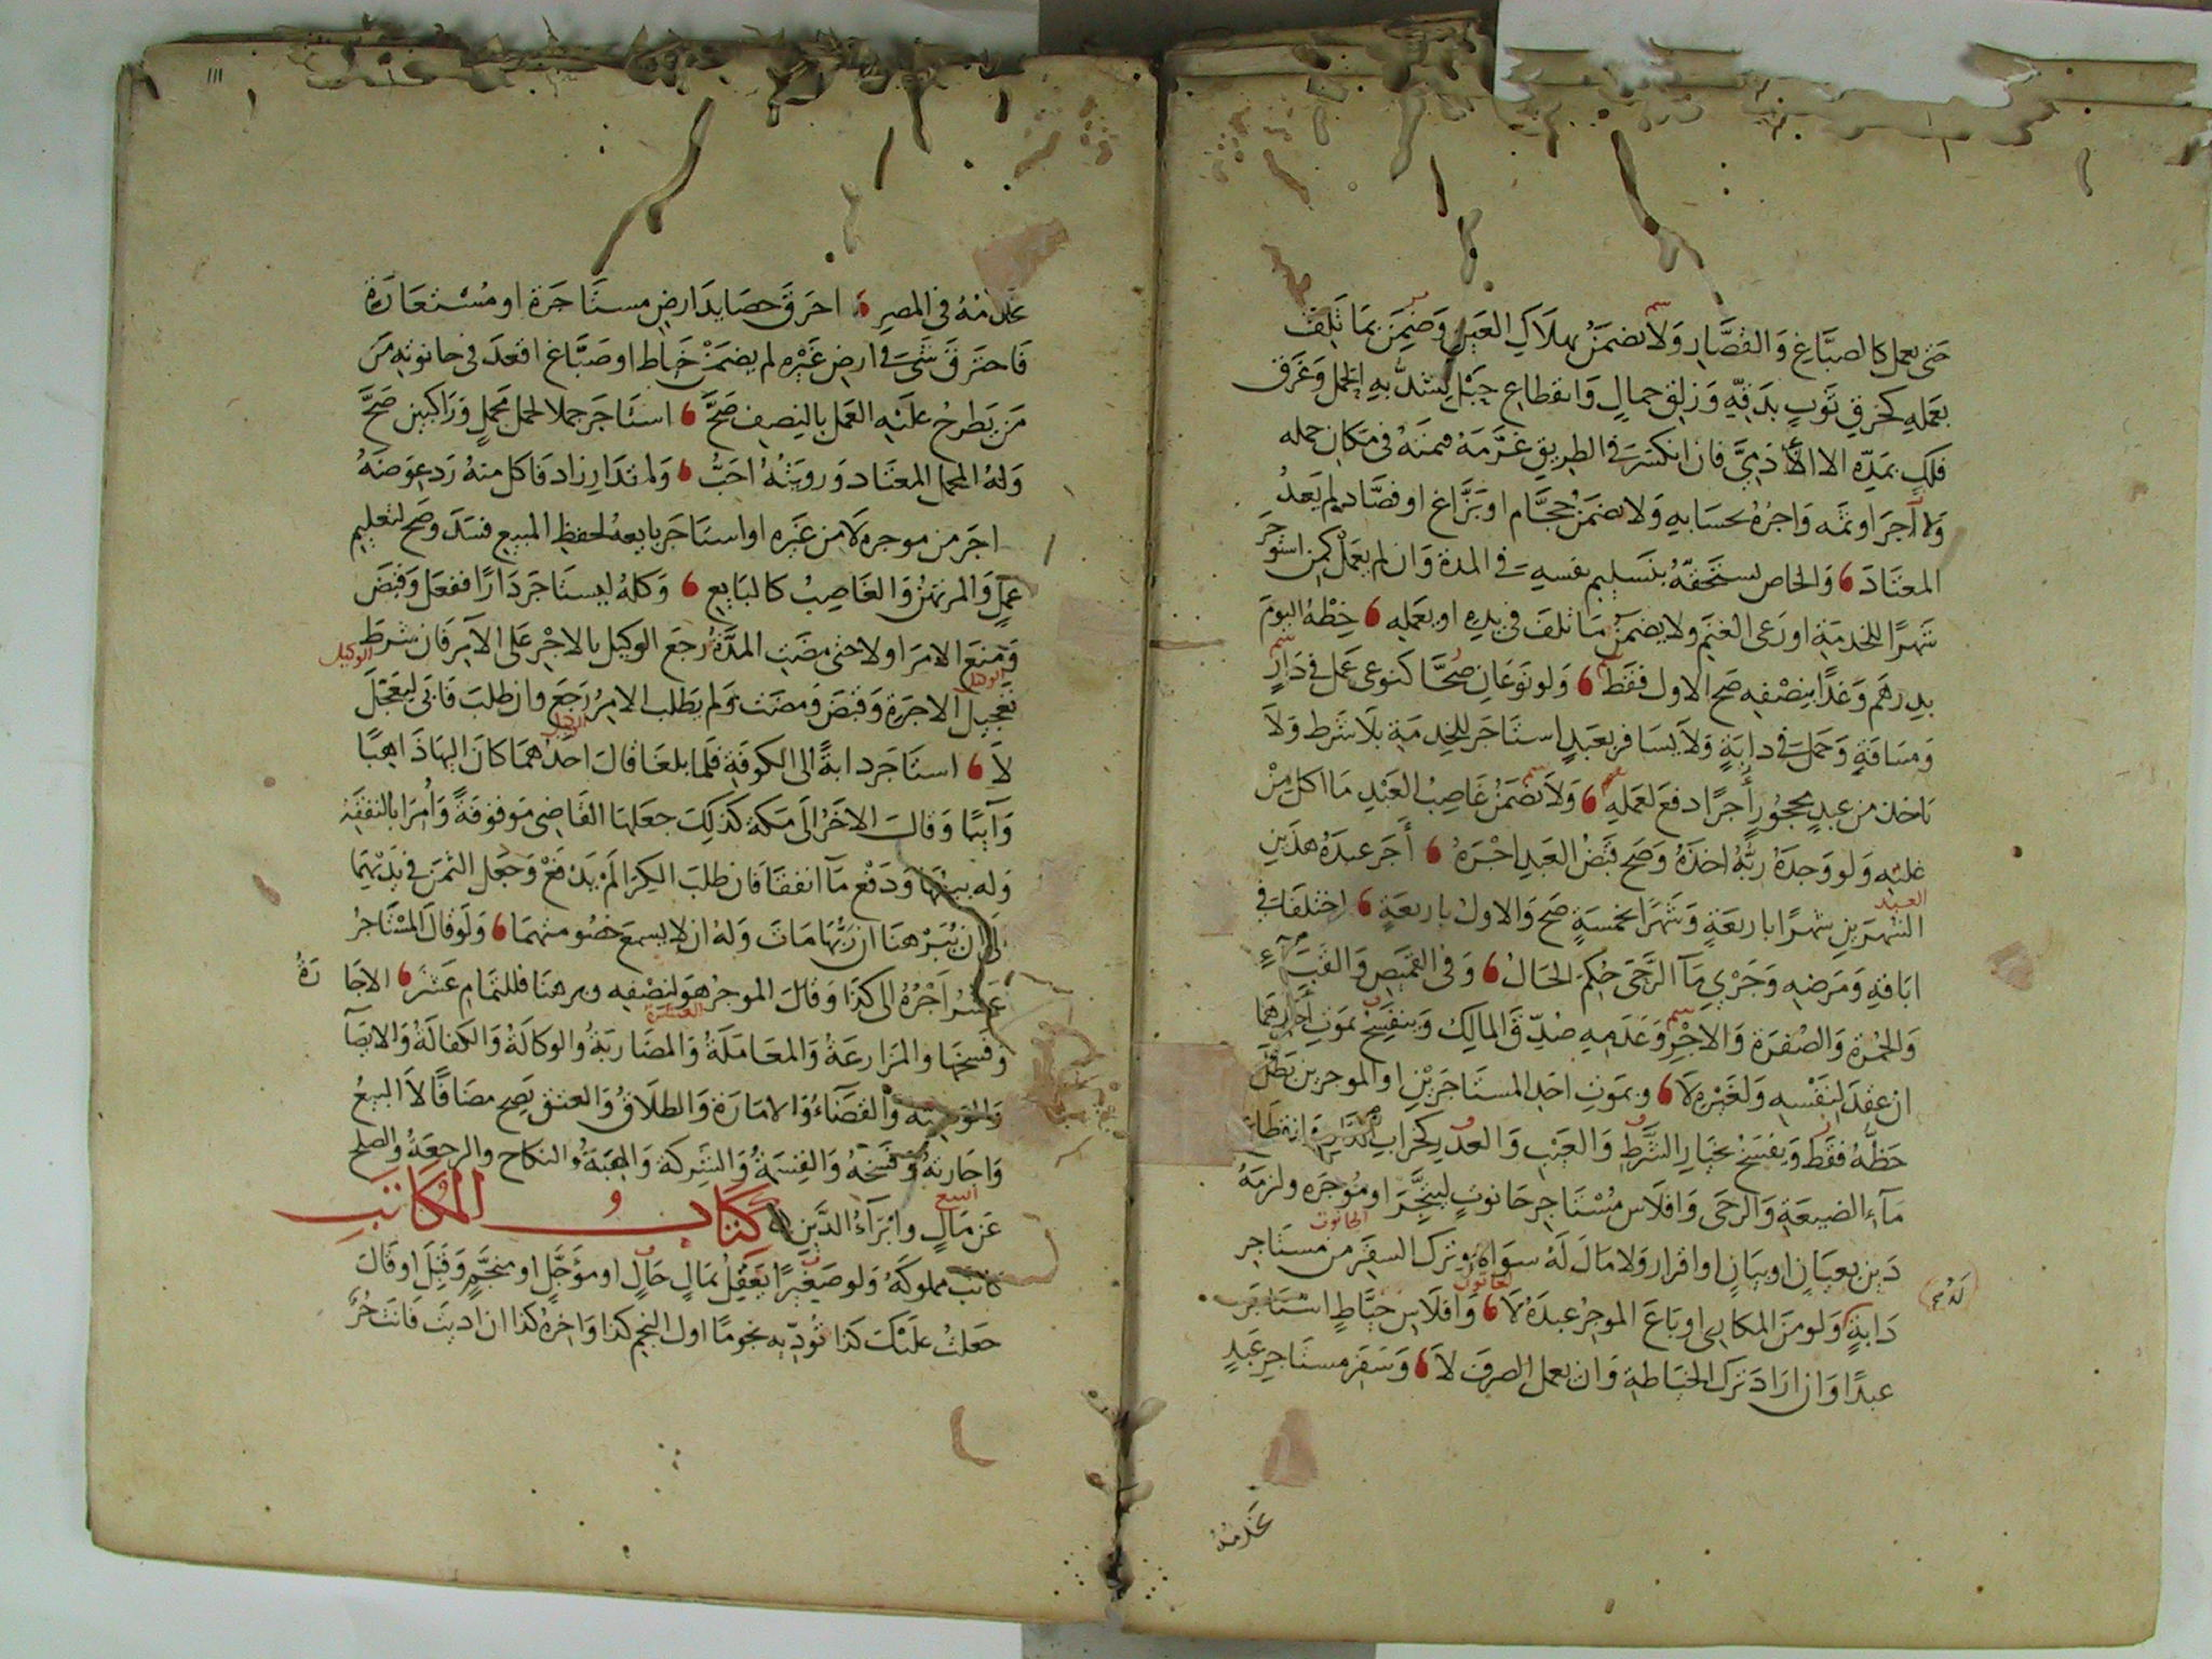 حتى يعمل كالصباغ وَالقصَّارِ وَلا يضمَنُ بهلاكِ العَينِ وَضمِنَ بمَا تلِفَ
بعَملهِ كخرقِ ثَوبٍ بدَقِّهِ وَزلقِ جمالٍ وَانقطاعِ حَبْلٍ يشدُّ بهِ الحمل وَغرَق
فلكٍ بمدِّهِ الا الآدَمِيَّ فان انكسَرَ في الطريقِ غرَّمَهُ قيمتَهُ في مَكان حمله
وَلا اَجرَ او ثمّه وَاجرُهُ بحسَابهِ وَلا يضمَنُ حجَّام او بَزَّاغ او فصَّاد لم يَعدُ
المعتَادَ وَالخاص يستحَقهُ بتَسليم نفسهِ في المدة وَان لم يعمَلْ كمن استوجرَ
شهرًا للخدمَةِ او رَعى الغنَم ولا يضمَنُ مَا تلفَ في يدِهِ او بعَملهِ خِطْهُ اليومَ
بدِرهَم وَغدًا بنِصْفهِ صَح الاول فقَط وَلو نوعَانِ صُحّا كنوعى عَمل في دَارٍ
وَمسَافةٍ وَحملٍ في دابةٍ وَلا يسَافر بعَبدٍ استَاجَر للخِدمَةِ بلا شرط وَلا
ياخذ من عبدٍ محجُورٍ أجرًا دفعَ لعَملهِ وَلا يضمَنُ غاصِبُ العَبْدِ مَا اكل مِنْ
غلته وَلو وَجدَهُ ربُّهُ اخذَهُ وَصَح قبْضُ العَبدِ اجْرَهُ أجَر عبدَهُ هذَينِ
العبد
الشهرَينِ شهرًا باربعَةٍ وَشهرًا بخمسَةٍ صَح وَالاول باربعَةٍ اختلفَا في
ابَاقهِ وَمرَضهِ وَجَرْيِ مَاَ الرَّحَى حُكِمَ الحَالُ وَفى القَميصِ وَالقبَاَءِ
وَالحُمْرة وَالصُفرَة وَالاجْرِ وَعَدَمِهِ صُدِّقَ المالِكُ وَينفَسِخ بمَوتِ أحدِهمَا
ان عقدَ لنَفْسِه وَلغَيْرهِ لا وبمَوتِ احَدِ المستَاجرَيْنِ او الموجرين بَطلَ
حَظّهُ فقَط وَيفْسَخ بخيَارِ الشَّرطِ وَالعَيْبِ وَالعذْرِ كخرَابِ الدَّارِ وَانقطَاعِ
مَآءِ الضيعَةِ وَالرحَى وَافلاسِ مُسْتاجرِ حَانوتٍ ليتَّجِّرَ او مُوجَره ولزمَهُ
الحانوت
دَين بعيَانٍ او بيَانٍ او اقرارٍ وَلا مَالَ لَهُ سوَاه وترك السفَر من مستَاجرِ
دَابةٍ وَلو منَ المكارِى او بَاعَ الموجِرُ عبدَهُ لا وَافلاسِ خيَّاطٍ استَاجَر
عبدًا وَان ارَادَ ترك الخيَاطةِ وَان يعمل الصرفَ لا وَسَفَرِ مستَاجرِ عَبدٍ
يخدمُهُ
١١١
يخدمُهُ فى المصرِ احرَقَ حصَايدَ ارضٍ مستَاجَرة او مُسْتعَارَة
فَاحترقَ شَئ في ارضِ غَيْرِه لم يضمَنْ خيَاط او صَبَّاغ اقعدَ في حانوته مَن
مَن يَطرحُ علَيْهِ العَمل بالنِصفِ صَحَّ استَاجَر جملا لحمل محمَلٍ وَرَاكبين صَحَّ
وَلهُ المحمل المعتَاد وَرويتُهُ احَبُّ وَلمقدَارِ زاد فَاكل منهُ رَد عوَضهُ
اجَر من موجره لا من غَيره او استَاجَر بايعه لحفظِ المبيع فسَدَ وصَح لتعليم
عملٍ وَالمرتهنُ وَالغَاصِبُ كالبَايع وَكلهُ ليستَاجَر دَارًا ففعَل وَقبَضَ
وَمنعَ الامرَ اولا حتى مضَتِ المدَّةُ رجَع الوكيل بالاجْرِ على الآمِرِ فَان شرَط
الوكيل
تعجيلَ الاجرَةِ وَقبَضَ وَمضَت وَلم يَطلب الامِرُ رَجَعَ وان طلبَ فَابَى ليعَجِّلَ
لا استَاجَر دابةً الى الكوفَةِ فلما بلغَا قالَ احَدُهمَا كانَ اليهَا ذَاهبًا
وَآيبًا وَقالَ الاخَرُ الى مَكة كذَلِكَ جعَلهَا القَاضِى مَوقوفَةً وَأمَرَا بالنفقَةِ
وَله بيعُهَا وَدفعْ مآ انفقَا فان طلبَ الكِرَا لم يَدْفعْ وَجَعل الثمَن في يَدَيْهِمَا
الى ان يُبَرْهنَا ان رَبَّهَا مَاتَ وَلهُ ان لا يسمعَ خصُومتهمَا وَلَو قالَ المسْتَاجرُ
عَشرًا اجْرُهُ الى كذَا وَقالَ الموجر هوَ لنِصْفهِ وبرهنَا فللتمامِ عَشرٌ الاجَارَةُ
وَفسخهَا والمزَارعَةُ وَالمعَامَلةُ وَالمضَاربَةُ والوكالَةُ وَالكفالَةُ وَالايصَآ
وَالوَصِيَّة وَالقضَآءُ وَالامَارَة وَالطلاقُ وَالعتق يَصِح مضَافًا لا البيعُ
وَاجَازتهُ وَفسخهُ وَالقِسمَةُ وَالشَرِكة وَالهِبَةُ والنكاح والرجعَةُ والصلح
البيع
عَن مَالٍ وابْرَآءُ الدَّينِ كتابُ المكاتب
كاتبَ مملوكَهُ وَلو صَغيرًا يعقِلُ بمَالٍ حَالٍ او مؤَجَّلٍ او منجَّمٍ وَقَبِلَ او قَالَ
جعَلتُ علَيْكَ كذَا تؤَدِّيهِ نجومًا اول النجم كذا وَاخرُهُ كذا ان اديتَ فَانتَ حُرٌّ